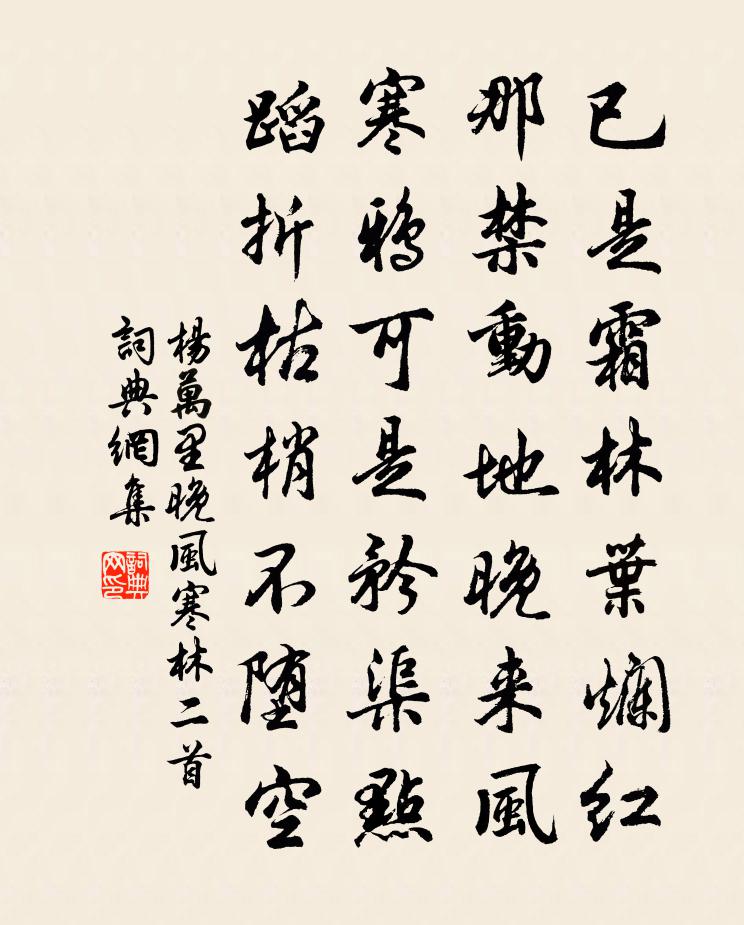 已是霜林葉爛紅
那禁動地晚來風
寒鴉可是矜渠黠
蹈折枯梢不墮空
楊萬里晚風寒林二首
詞典網集
詞典网印